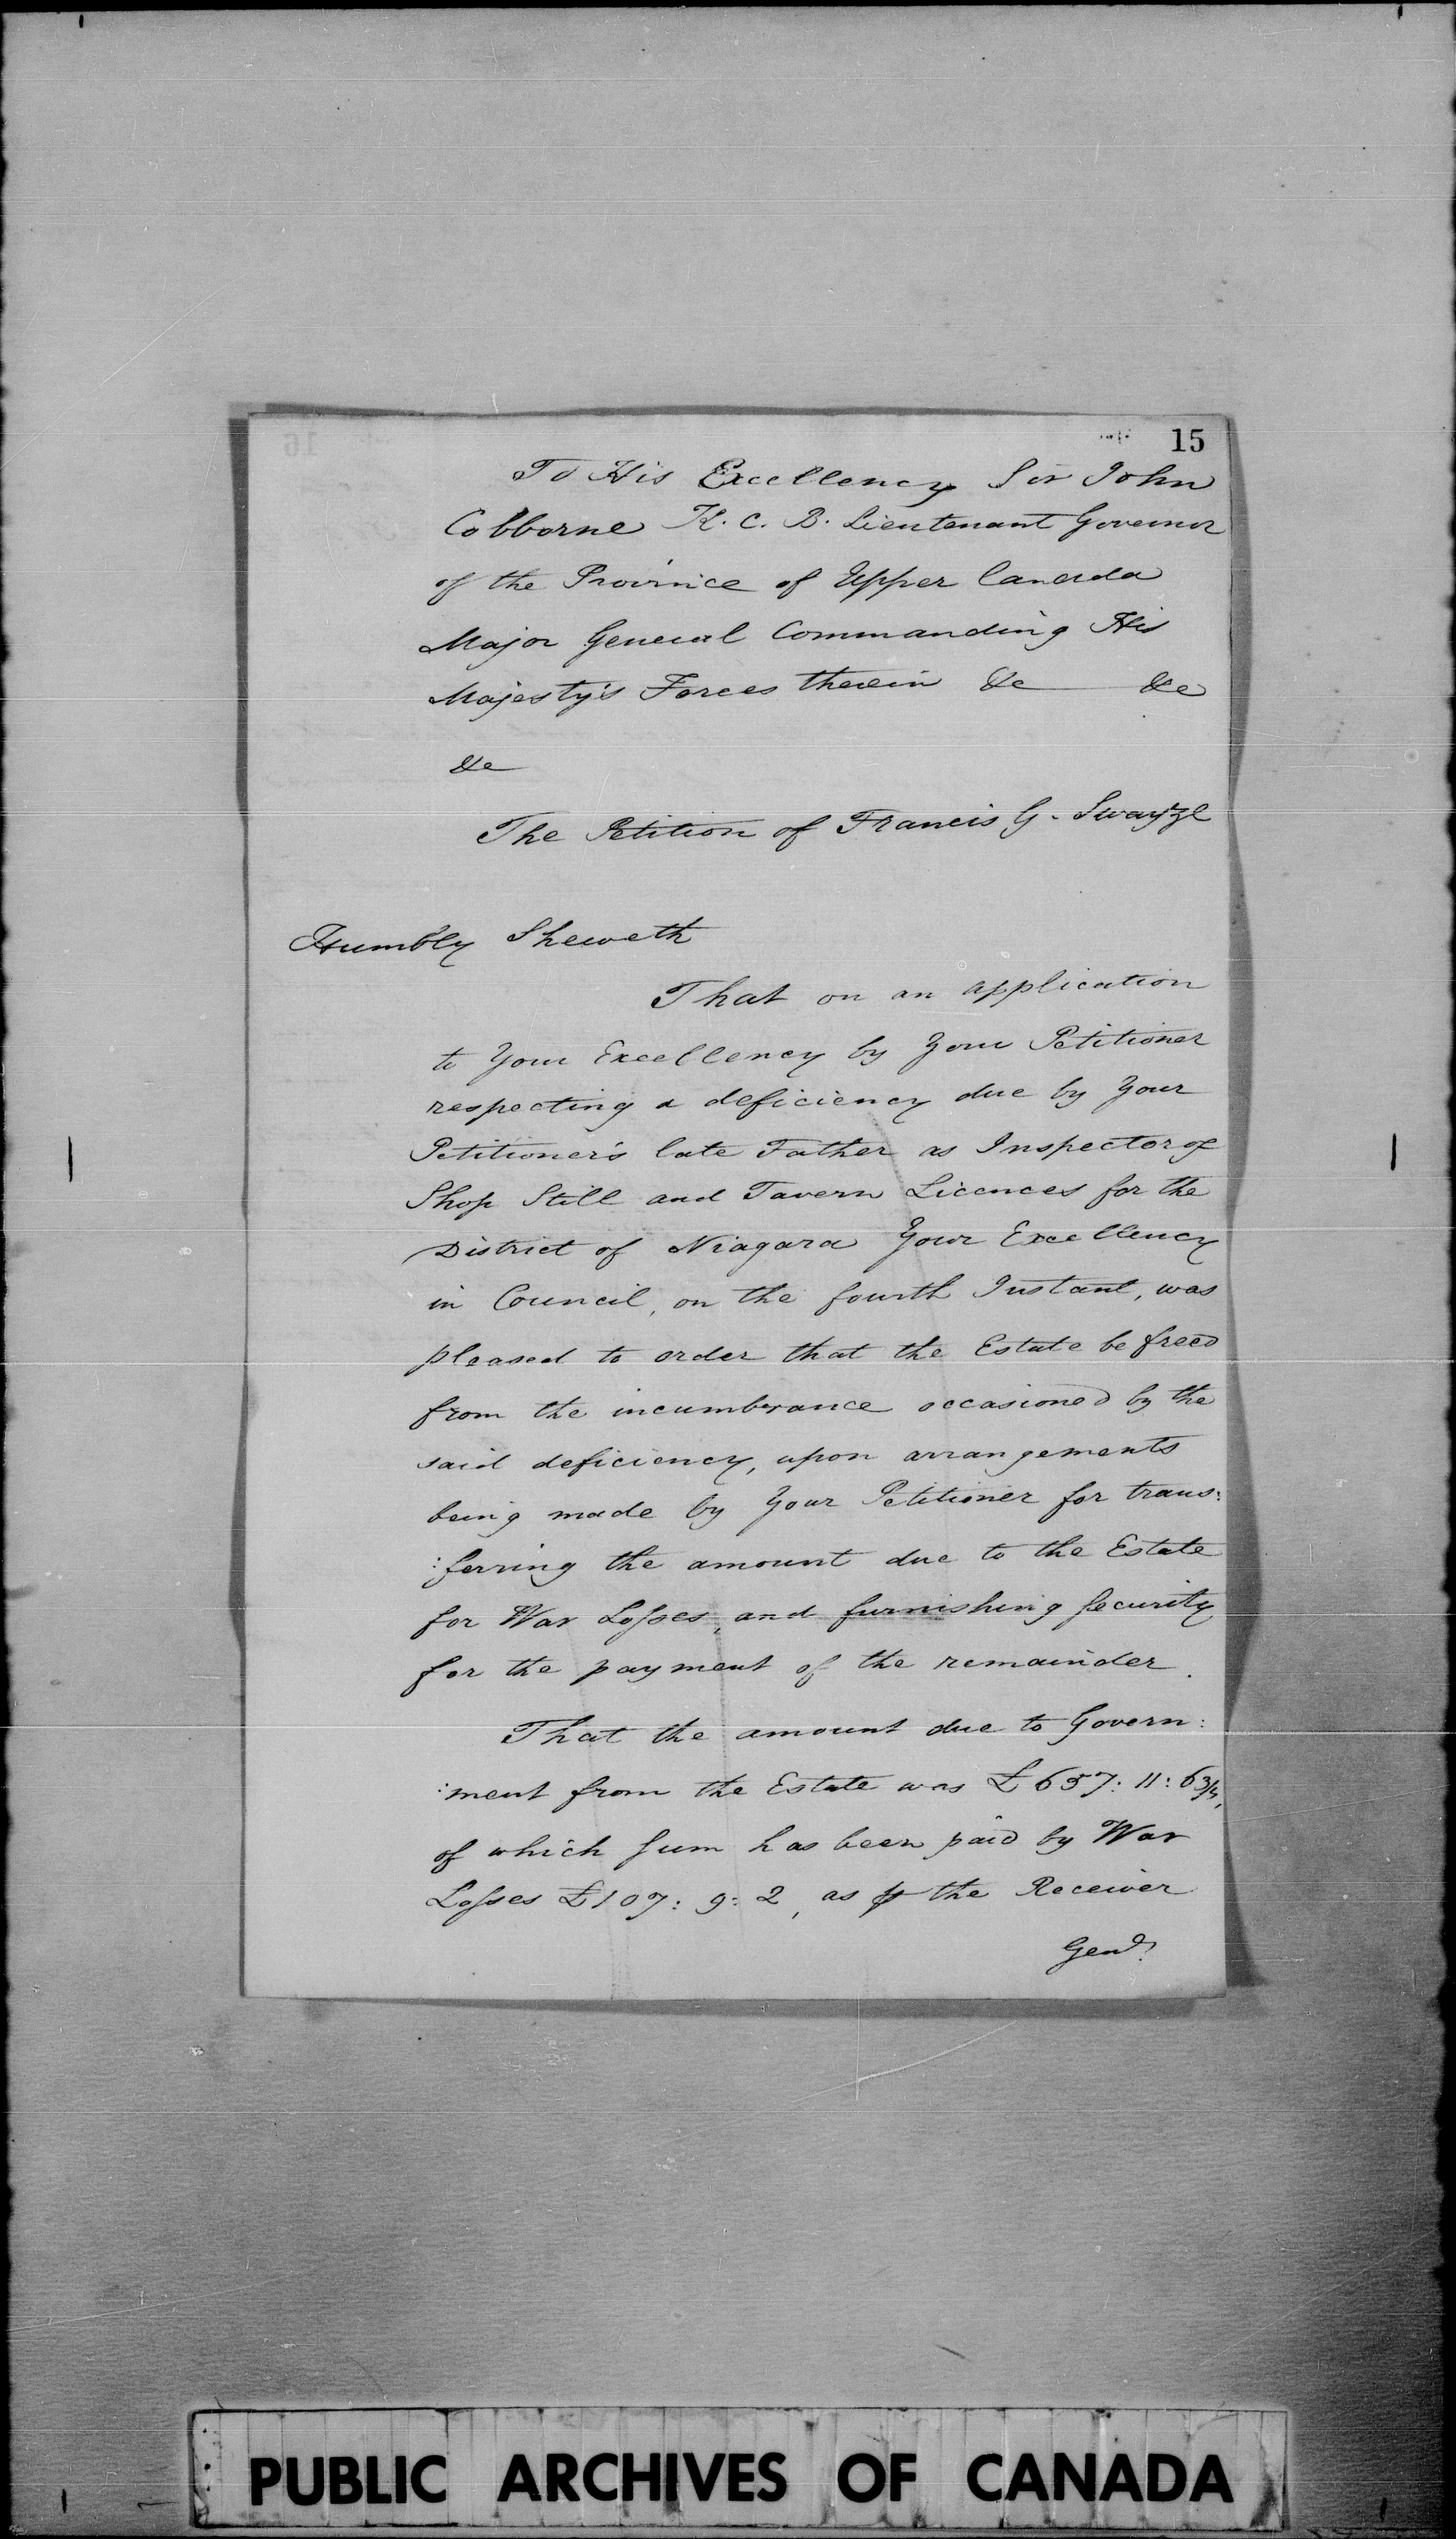 15
To His Excellency Sir John
Colborne K. C. B. Lieutenant Governor
of the Province of Upper Canada
Major General Commanding His
Majesty's Forces therein &c &c
&c
The Petition of Francis G. Swayze
Humbly Sheweth
That on an application
to Your Excellency by Your Petitioner
respecting a deficiency due by Your
Petitioner's late Father as Inspector of
Shop Still and Tavern Licences for the
District of Niagara Your Excellency
in Council, on the fourth Instant, was
pleased to order that the Estate be freed
from the incumbrance occasioned by the
said deficiency, upon arrangements
being made by Your Petitioner for trans:
:ferring the amount due to the Estate
for War Losses, and furnishing Security
for the payment of the remainder.
That the amount due to Govern:
:ment from the Estate was £657:11:6¾,
of which Sum has been paid by War
Losses £107:9:2, as ⅌ the Receiver
Genl.
PUBLIC ARCHIVES OF CANADA